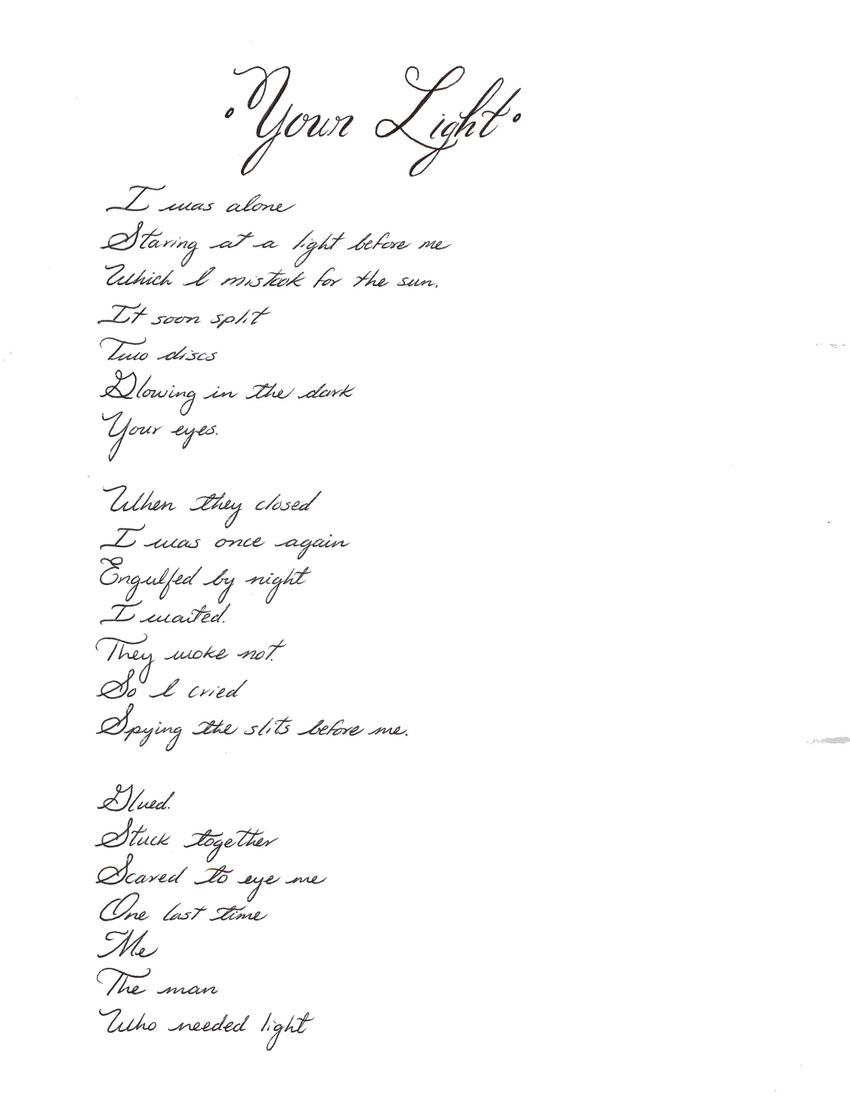 Your Light
I was alone
Staring at a light before me
Which I mistook for the sun.
It soon split
Two discs
Glowing in the dark
Your eyes.
When they closed
I was once again
Engulfed by night
I waited.
They woke not.
So I cried
Spying the slits before me.
Glued.
Stuck together
Scared to eye me
One last time
Me
The man
Who needed light